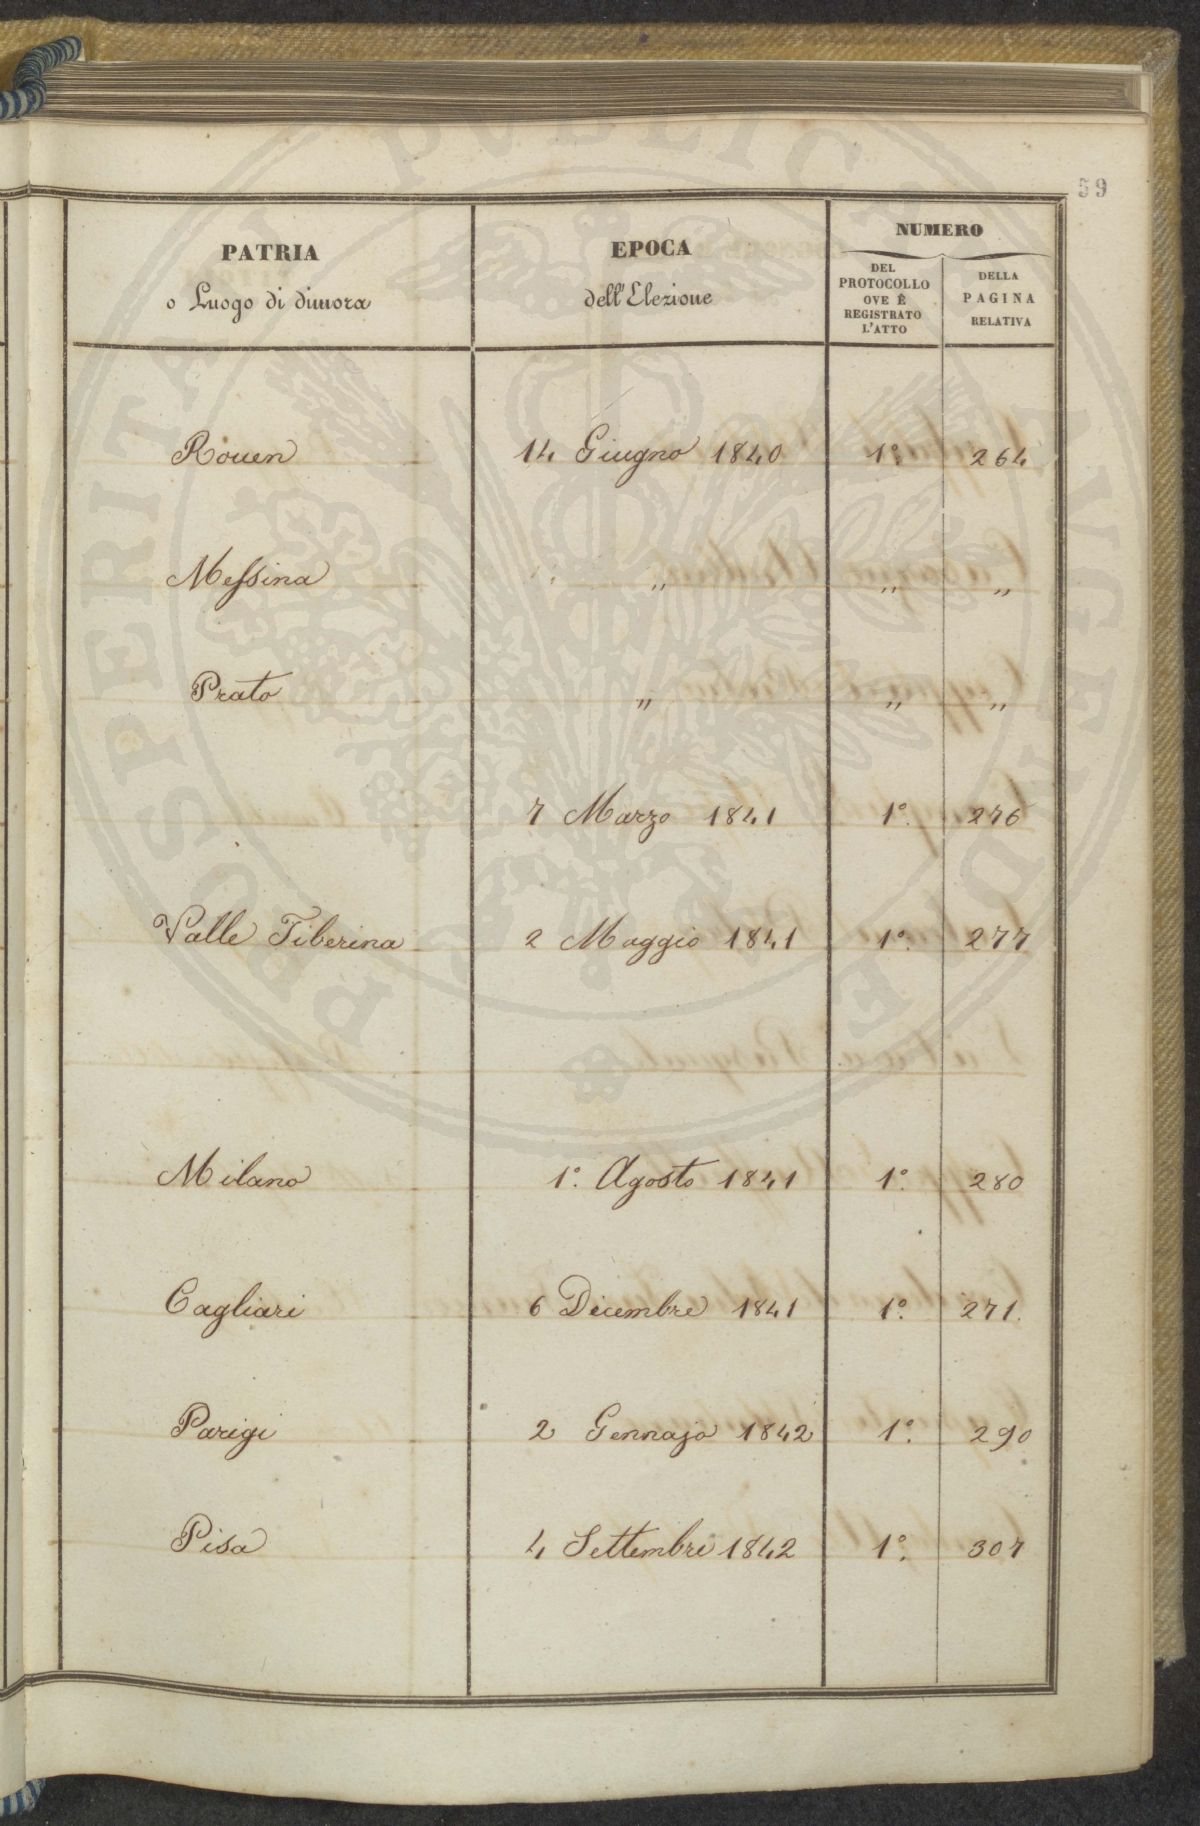 59
PATRIA
o Luogo di dimora
EPOCA
dell'Elezione
NUMERO
DEL
PROTOCOLLO
OVE È
REGISTRATO
L'ATTO
DELLA
PAGINA
RELATIVA
Rouen 14 Giugno 1840 1º. 264
Messina " " "
Prato " " "
7 Marzo 1841 1º. 276
Valle Tiberina 2 Maggio 1841 1º. 277
Milano 1º. Agosto 1841 1º. 280
Cagliari 6 Dicembre 1841 1º. 271.
Parigi 2 Gennajo 1842 1º. 290
Pisa 4 Settembre 1842 1º. 307
PROSPERITATI PUBLICAE AUGENDAE